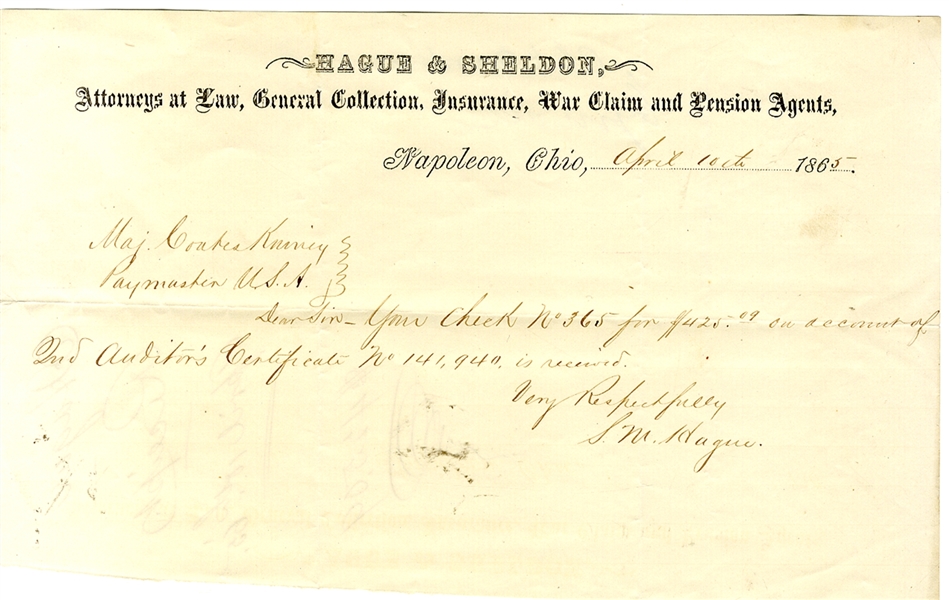 HAGUE & SHELDON,
Attorneys at Law, General Collection, Insurance, War Claim and Pension Agents,
Napoleon, Ohio, April 10th 1865.
Maj. Coates Kinney
Paymaster U.S.A.
Dear Sir – Your Check No 365 for $425.09 on account of
2nd Auditor's Certificate No 141,940, is received.
Very Respectfully
S. M. Hague.